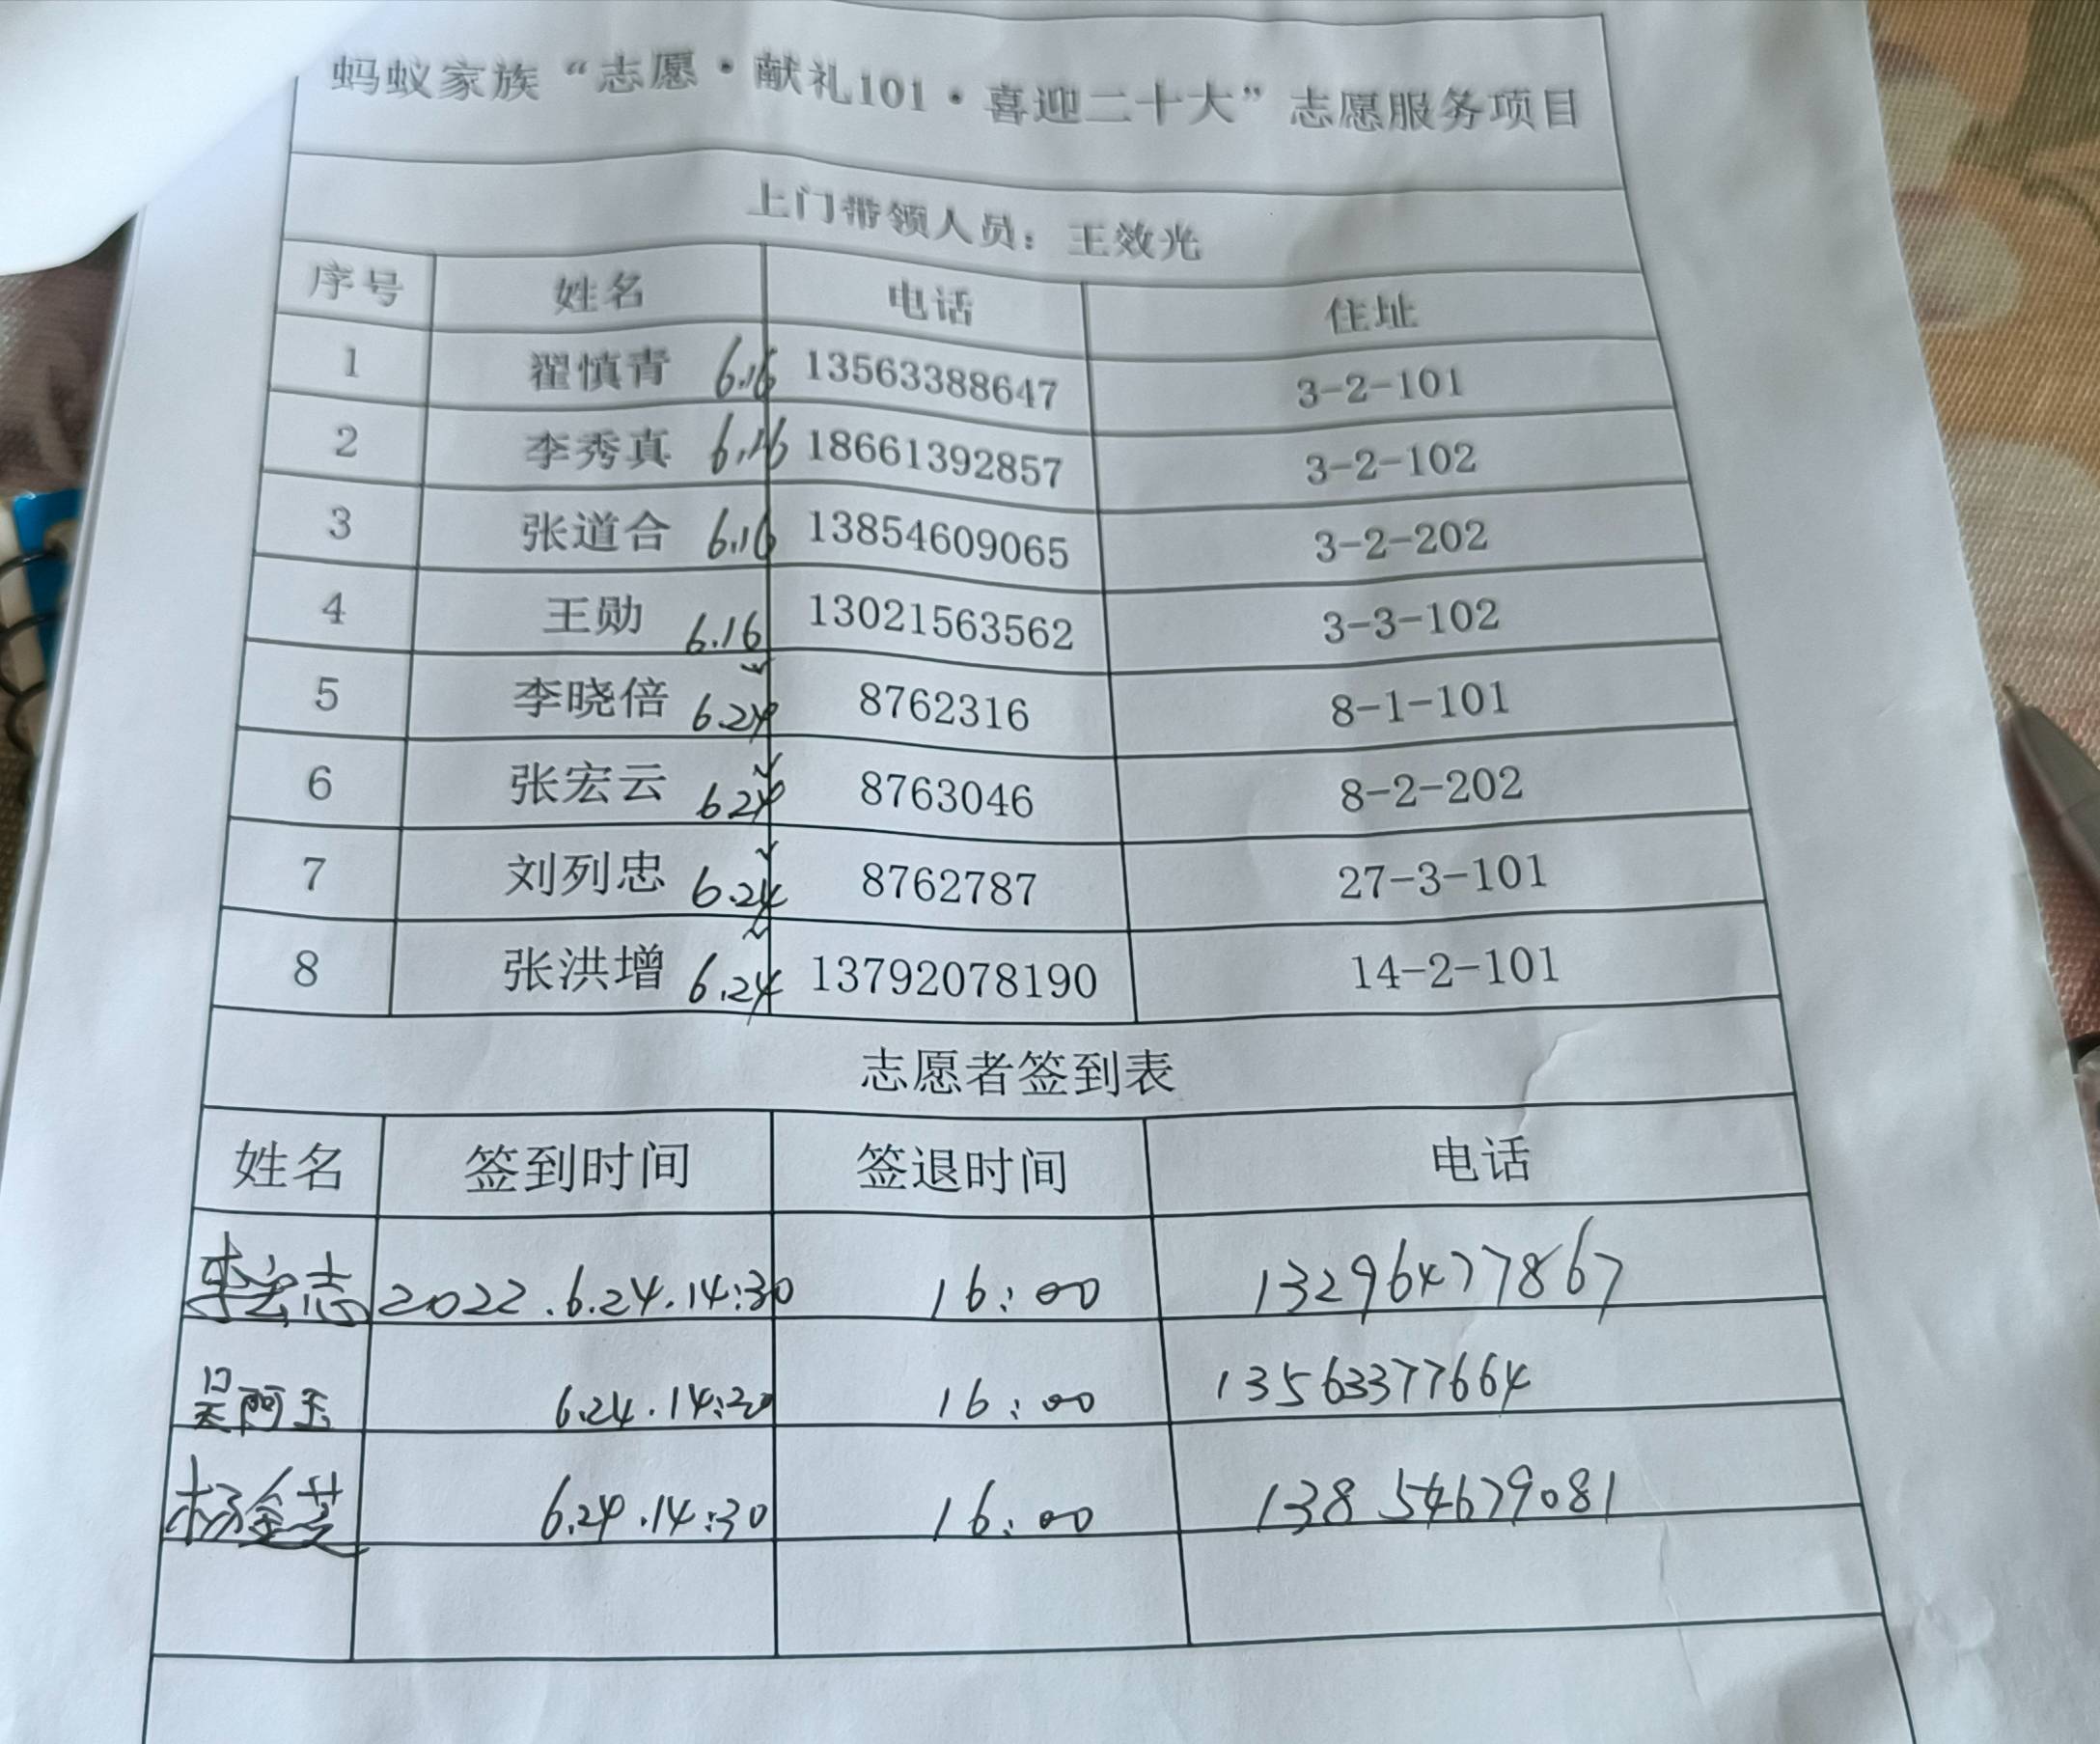 蚂蚁家族“志愿·献礼101·喜迎二十大”志愿服务项目
上门带领人员：王效光
序号 姓名 电话 住址
1 翟慎青 6.16 13563388647 3-2-101
2 李秀真 6.16 18661392857 3-2-102
3 张道合 6.16 13854609065 3-2-202
4 王勋 6.16 13021563562 3-3-102
5 李晓倍 6.24 8762316 8-1-101
6 张宏云 6.24 8763046 8-2-202
7 刘列忠 6.24 8762787 27-3-101
8 张洪增 6.24 13792078190 14-2-101
志愿者签到表
姓名 签到时间 签退时间 电话
李宏志 2022.6.24.14:30 16:00 13296477867
吴阿玉 6.24.14:30 16:00 13563377664
杨金芝 6.24.14:30 16:00 13854679081